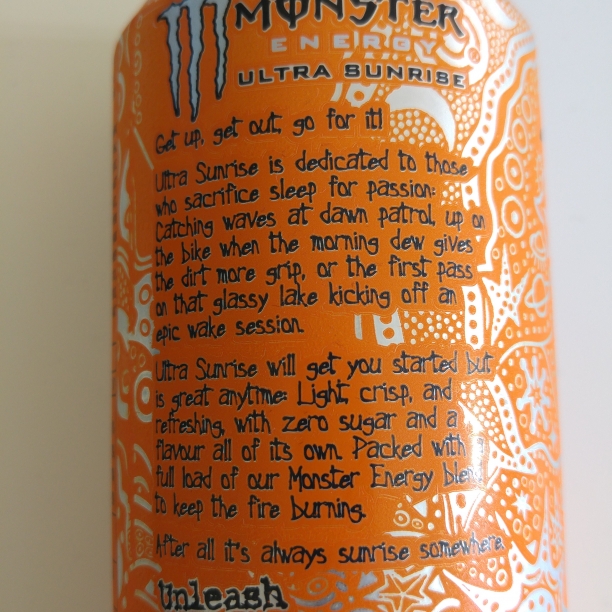 MONSTER
ENERGY
ULTRA SUNRISE
Get up, get out, go for it!
Ultra Sunrise is dedicated to those
who sacrifice sleep for passion:
Catching waves at dawn patrol, up on
the bike when the morning dew gives
the dirt more grip, or the first pass
on that glassy lake kicking off an
epic wake session.
Ultra Sunrise will get you started but
is great anytime: Light, crisp, and
refreshing, with zero sugar and a
flavour all of its own. Packed with a
full load of our Monster Energy blend
to keep the fire burning.
After all it's always sunrise somewhere.
Unleash